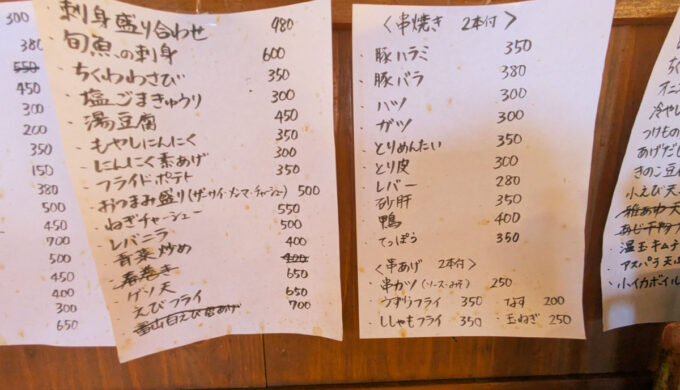 300
380
550
450
300
200
350
150
380
500
450
700
500
450
400
300
650
刺身盛り合わせ 980
旬魚の刺身 600
ちくわわさび 350
塩ごまきゅうり 300
湯豆腐 450
もやしにんにく 350
にんにく素あげ 300
フライドポテト 350
おつまみ盛り(ザーサイ・メンマ・チャーシュー) 500
ねぎチャーシュー 550
レバニラ 500
青菜炒め 400
春巻き 400
ゲソ天 650
えびフライ 650
700
<串焼き 2本付>
・豚ハラミ 350
・豚バラ 380
・ハツ 300
・ガツ 300
・とりめんたい 350
・とり皮 300
・レバー 280
・砂肝 350
・鴨 400
・てっぽう 350
<串あげ 2本付>
・串カツ(ソース・みそ) 250
・うずらフライ 350 なす 200
・ししゃもフライ 350 ・玉ねぎ 250
冷やし
つけもの
あげだし
きのこ豆腐
小えび天
温玉キムチ
・アスパラ天
・小イカボイル